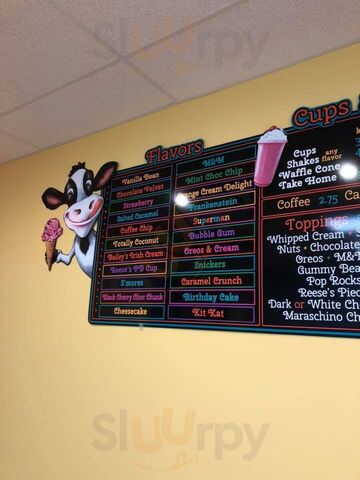 Sluurpy
Flavors
Vanilla Bean
Chocolate Velvet
Strawberry
Salted Caramel
Coffee Chip
Totally Coconut
Bailey's Irish Cream
Reese's PB Cup
S'mores
Black Cherry Choc Chunk
Cheesecake
M&M
Mint Choc Chip
Orange Cream Delight
Frankenstein
Superman
Bubble Gum
Oreos & Cream
Snickers
Caramel Crunch
Birthday Cake
Kit Kat
Cups
Cups any
Shakes flavor
Waffle Cone
Take Home
Coffee 2.75
Toppings
Whipped Cream
Nuts • Chocolate
Oreos • M&M
Gummy Bea
Pop Rocks
Reese's Piec
Dark or White Ch
Maraschino Ch
Sluurpy